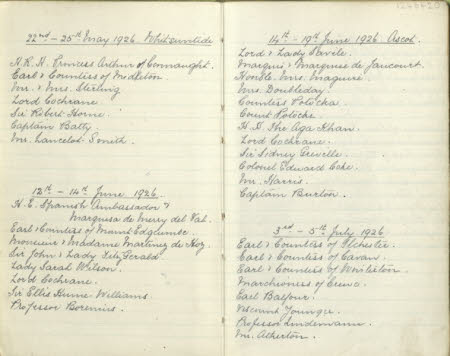 22nd - 25th May 1926. Whitsuntide
H.R.H. Princess Arthur of Connaught.
Earl & Countess of Midleton
Mr. & Mrs. Stirling
Lord Cochrane
Sir Robert Horne.
Captain Batty.
Mr. Lancelot Smith.
12th - 14th June 1926.
H.E. Spanish Ambassador &
Marquesa de Merry del Val.
Earl & Countess of Mount Edgcumbe.
Monsieur & Madame Martinez de Hoz.
Sir John & Lady FitzGerald
Lady Sarah Wilson.
Lord Cochrane.
Sir Ellis Hume-Williams
Professor Borenius.
14th - 19th June 1926. Ascot.
Lord & Lady Savile.
Marquis & Marquise de Jaucourt.
Honble. Mrs. Maguire.
Mrs. Doubleday.
Countess Potocka.
Count Potocki.
H.H. The Aga Khan.
Lord Cochrane.
Sir Sidney Greville.
Colonel Edward Coke.
Mr. Harris.
Captain Burton.
3rd - 5th July 1926
Earl & Countess of Ilchester.
Earl & Countess of Cavan.
Earl & Countess of Winterton.
Marchioness of Crewe.
Earl Balfour.
Viscount Younger.
Professor Lindemann.
Mr. Atherton.